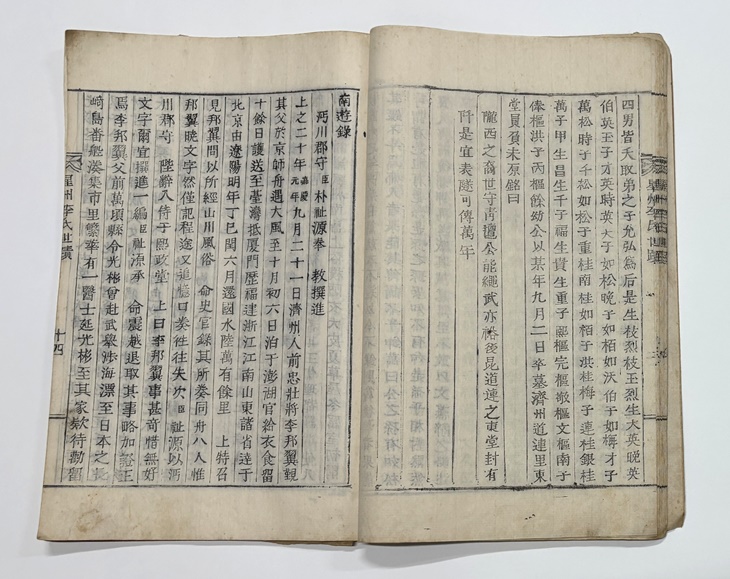 四男皆夭取弟之子允弘爲后是生枝烈枝玉烈生大英晚英
伯英玉子才英時英大子如松晚子如栢如沃伯子如梅才子
萬松時子千松如松子重桂南桂如栢子洪桂梅子連桂銀桂
萬子甲生昌生千子福生貴生重子熙樞完樞敬樞文樞南子
俸樞洪子丙樞餘幼公以某年九月二日卒墓濟州道連里東
堂員負未原銘曰
隴西之裔世守靑氊公能繩武亦裕後昆道連之東堂封有
阡是宜表隧可傳萬年
南遊錄
沔川郡守臣朴趾源奉 敎撰進
上之二十年嘉慶元年九月二十一日濟州人前忠壯將李邦翼覲
其父於京師舟遇大風至十月初六日泊于澎湖官給衣食留
十餘日護送至臺灣抵厦門歷福建浙江江南山東諸省達于
北京由遼陽明年丁巳閏六月還國水陸萬有餘里 上特召
見邦翼問以所經山川風俗 命史官錄其所奏同舟八人惟
邦翼曉文字然僅記程途又追憶口奏徃徃失次臣趾源以沔
川郡守 陛辭入侍于熙政堂 上曰李邦翼事甚奇惜無好
文字爾宜撰進一編臣趾源承 命震越退取其事略加證正
焉李邦翼父前萬頃縣令光彬曾赴武擧渉海漂至日本之長
﨑島番舶湊集市里繁華有一醫士延光彬至其家欵待勸留
星州李氏世蹟
十四
星州李氏世蹟